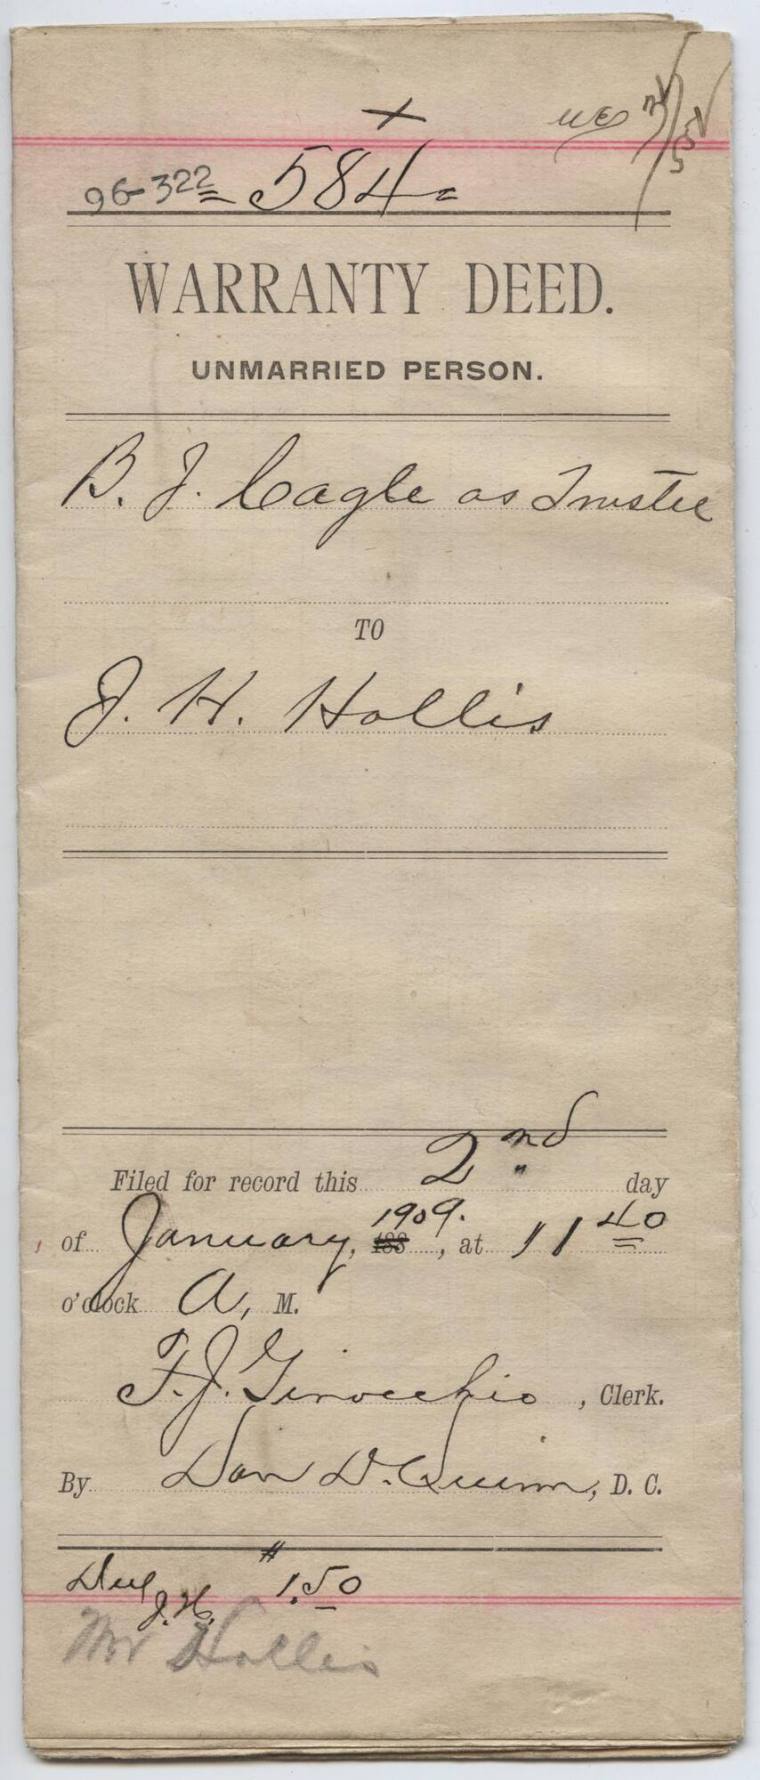 +
96-322 = 584 =
WARRANTY DEED.
UNMARRIED PERSON.
B. J. Cagle as Trustee
TO
J. H. Hollis
Filed for record this 2nd day
of January, 1909. 188 , at 11 40
o'clock A, M.
F. J. Ginocchio , Clerk.
By Dan D. Quinn, D. C.
Due $1.50
J. H.
Mr Hollis